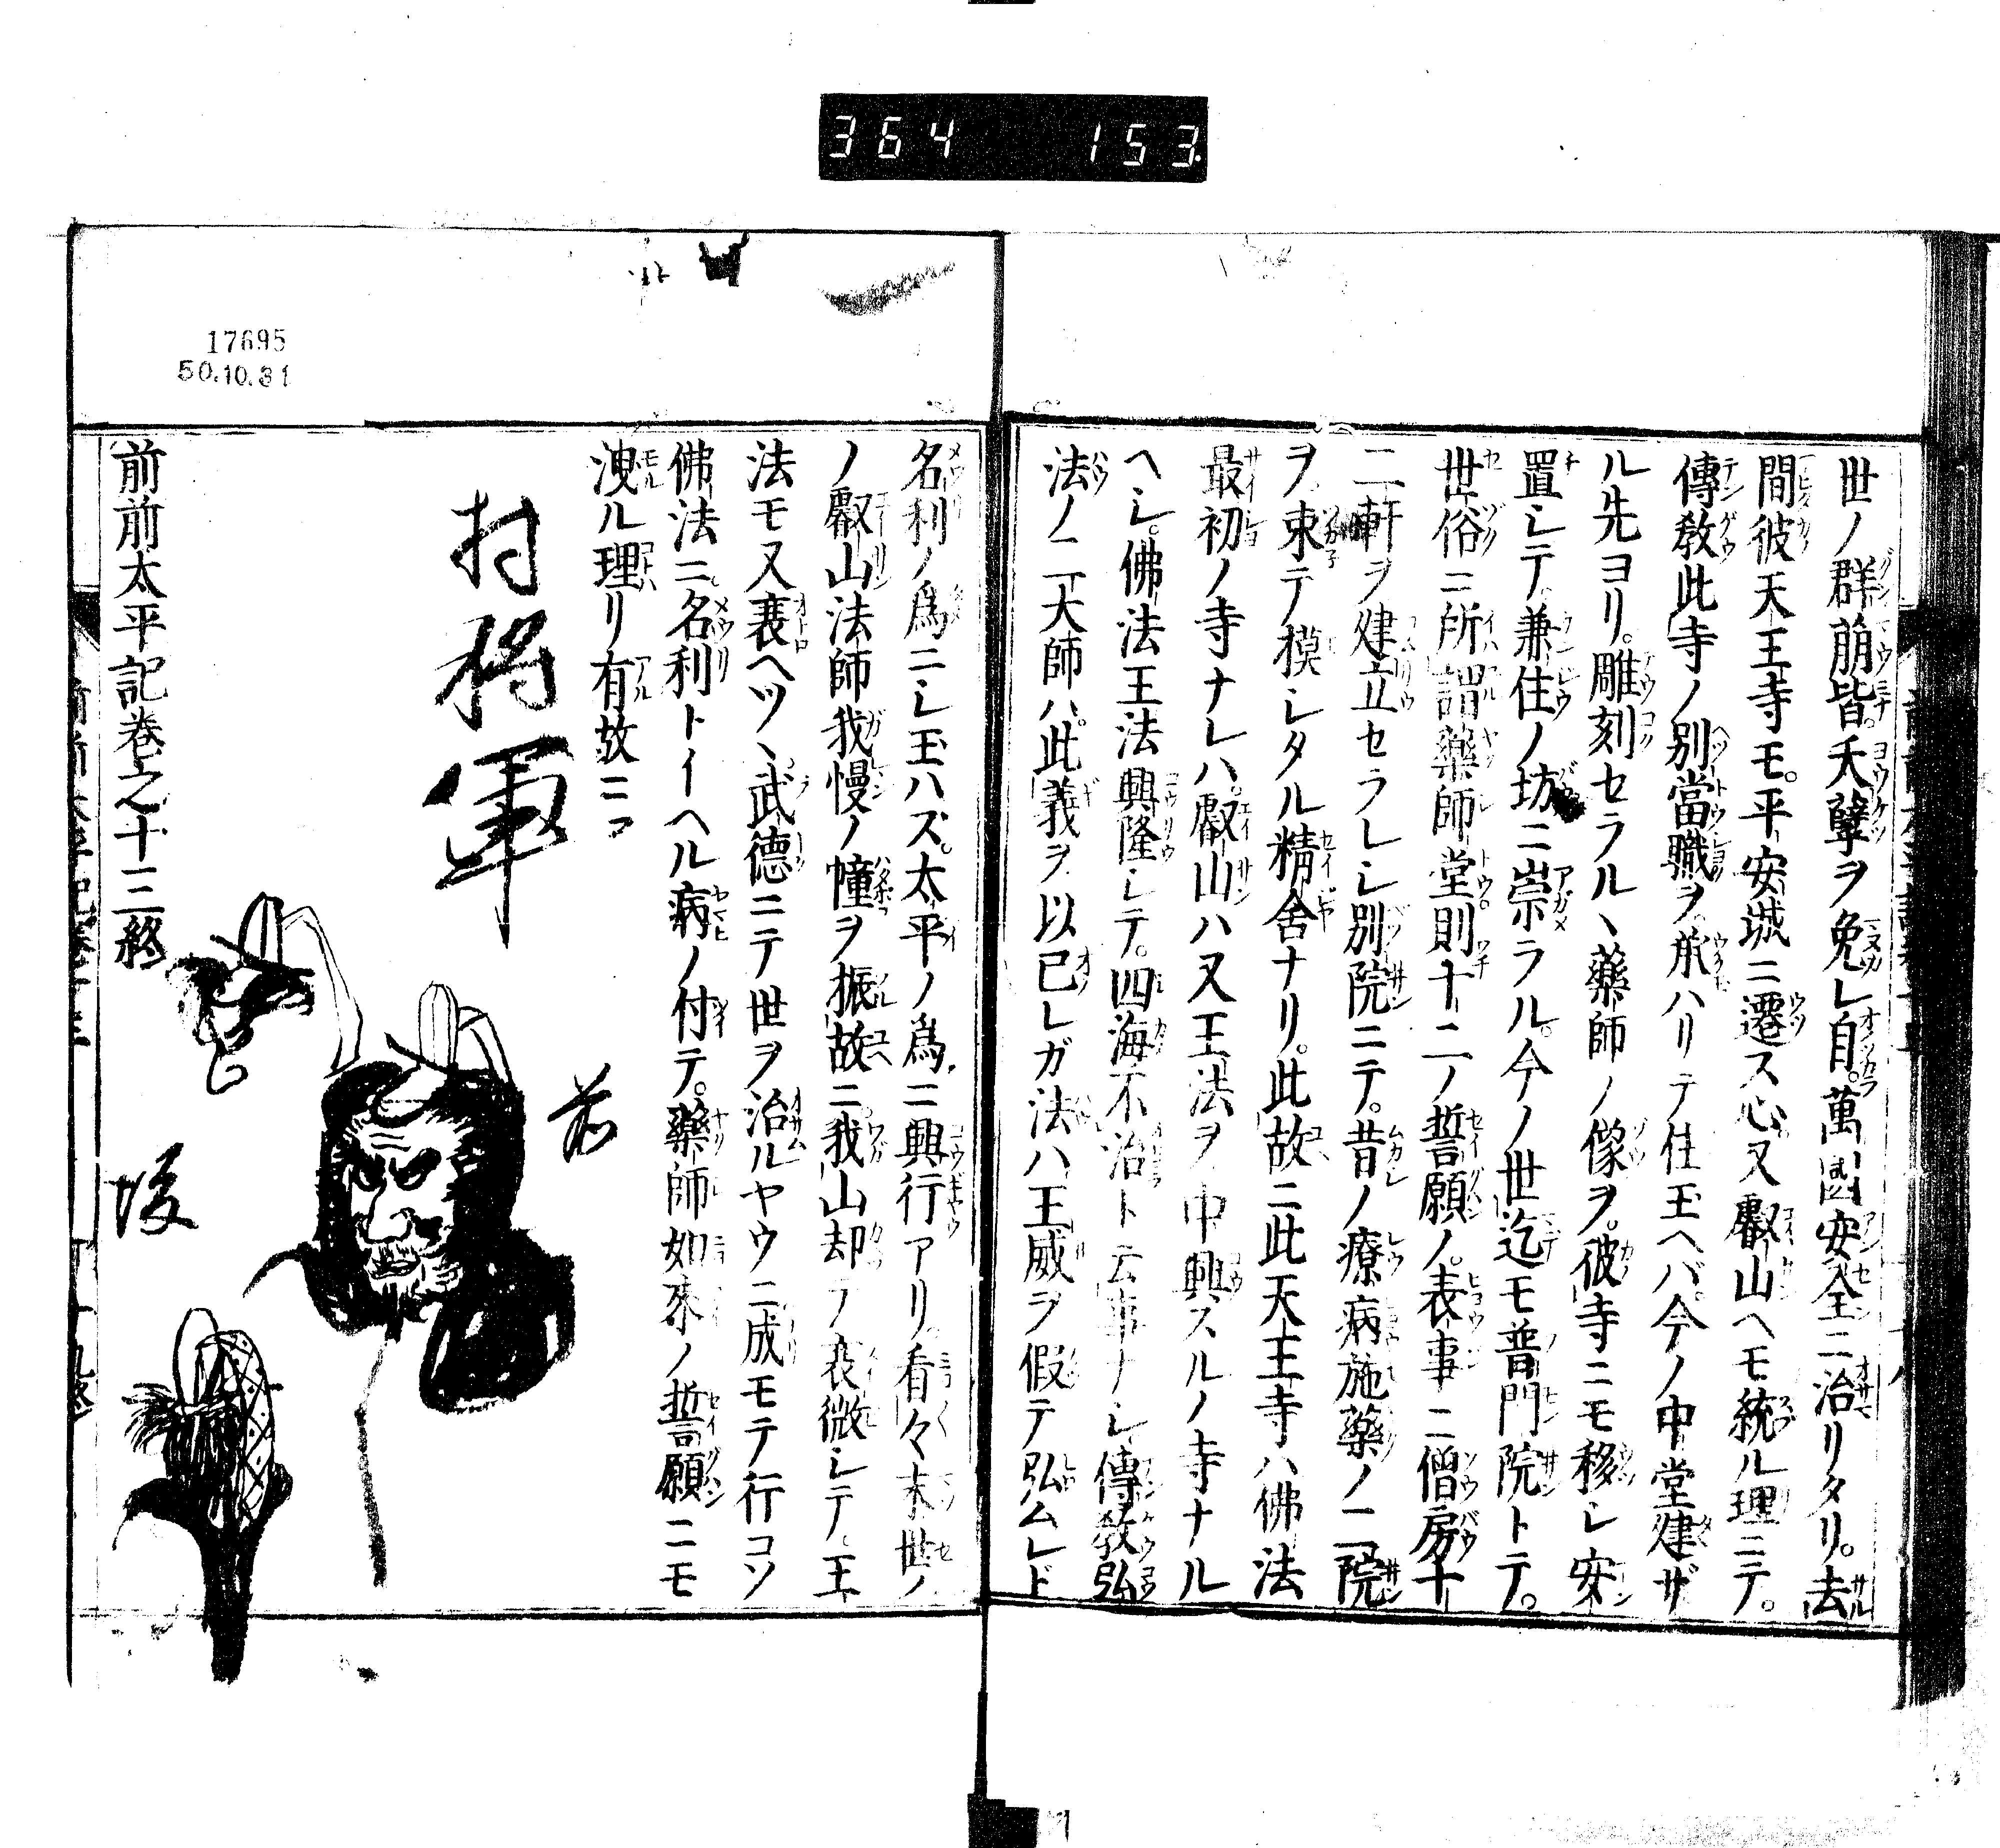 364 153.
世ノ群萠皆。夭孽ヲ免レ自。萬國安全ニ治リタリ。去
間彼天王寺モ。平安城ニ遷ス心又叡山ヘモ統ル理ニテ。
傳教此寺ノ別當職ヲ。承ハリテ住玉ヘバ。今ノ中堂建ザ
ル先ヨリ。雕刻セラルヽ藥師ノ像ヲ。彼寺ニモ移シ安
置シテ。兼住ノ坊ニ崇ラル。今ノ世迄モ普門院トテ。
世俗ニ所謂藥師堂則十二ノ誓願ノ。表事ニ僧房十
二軒ヲ建立セラレシ別院ニテ。昔ノ療病施藥ノ二院
ヲ束テ模シタル精舍ナリ。此故ニ此天王寺ハ佛法
最初ノ寺ナレハ。叡山ハ又王法ヲ中興スルノ寺ナル
ヘシ。佛法王法興隆シテ。四海不治ト云事ナシ傳教弘
法ノ二大師ハ。此義ヲ以己レガ法ハ王威ヲ假テ弘ムレド
名利ノ爲ニシ玉ハズ。太平ノ爲ニ興行アリ。看々末世ノ
ノ叡山法師我慢ノ幢ヲ振故ニ。我山却テ衰微シテ。王
法モ又衰ヘツヽ。武德ニテ世ヲ治ルヤウニ成モテ行コソ
佛法ニ。名利トイヘル病ノ付テ。藥師如來ノ誓願ニモ
洩ル理リ有故ニヿ
村将軍
前前太平記卷之十三終
17695
50.10.31